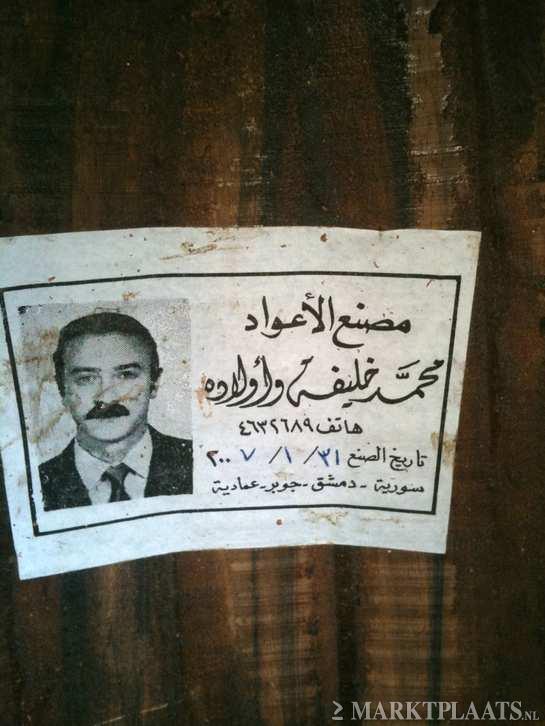 مصنع الأعواد
محمَّد خليفة وأولاده
هاتف ٤٦٣٢٦٨٩
تاريخ الصنع ٣١ / ١ / ٢٠٠٧
سورية - دمشق - جوبر - عمادية
MARKTPLAATS.NL